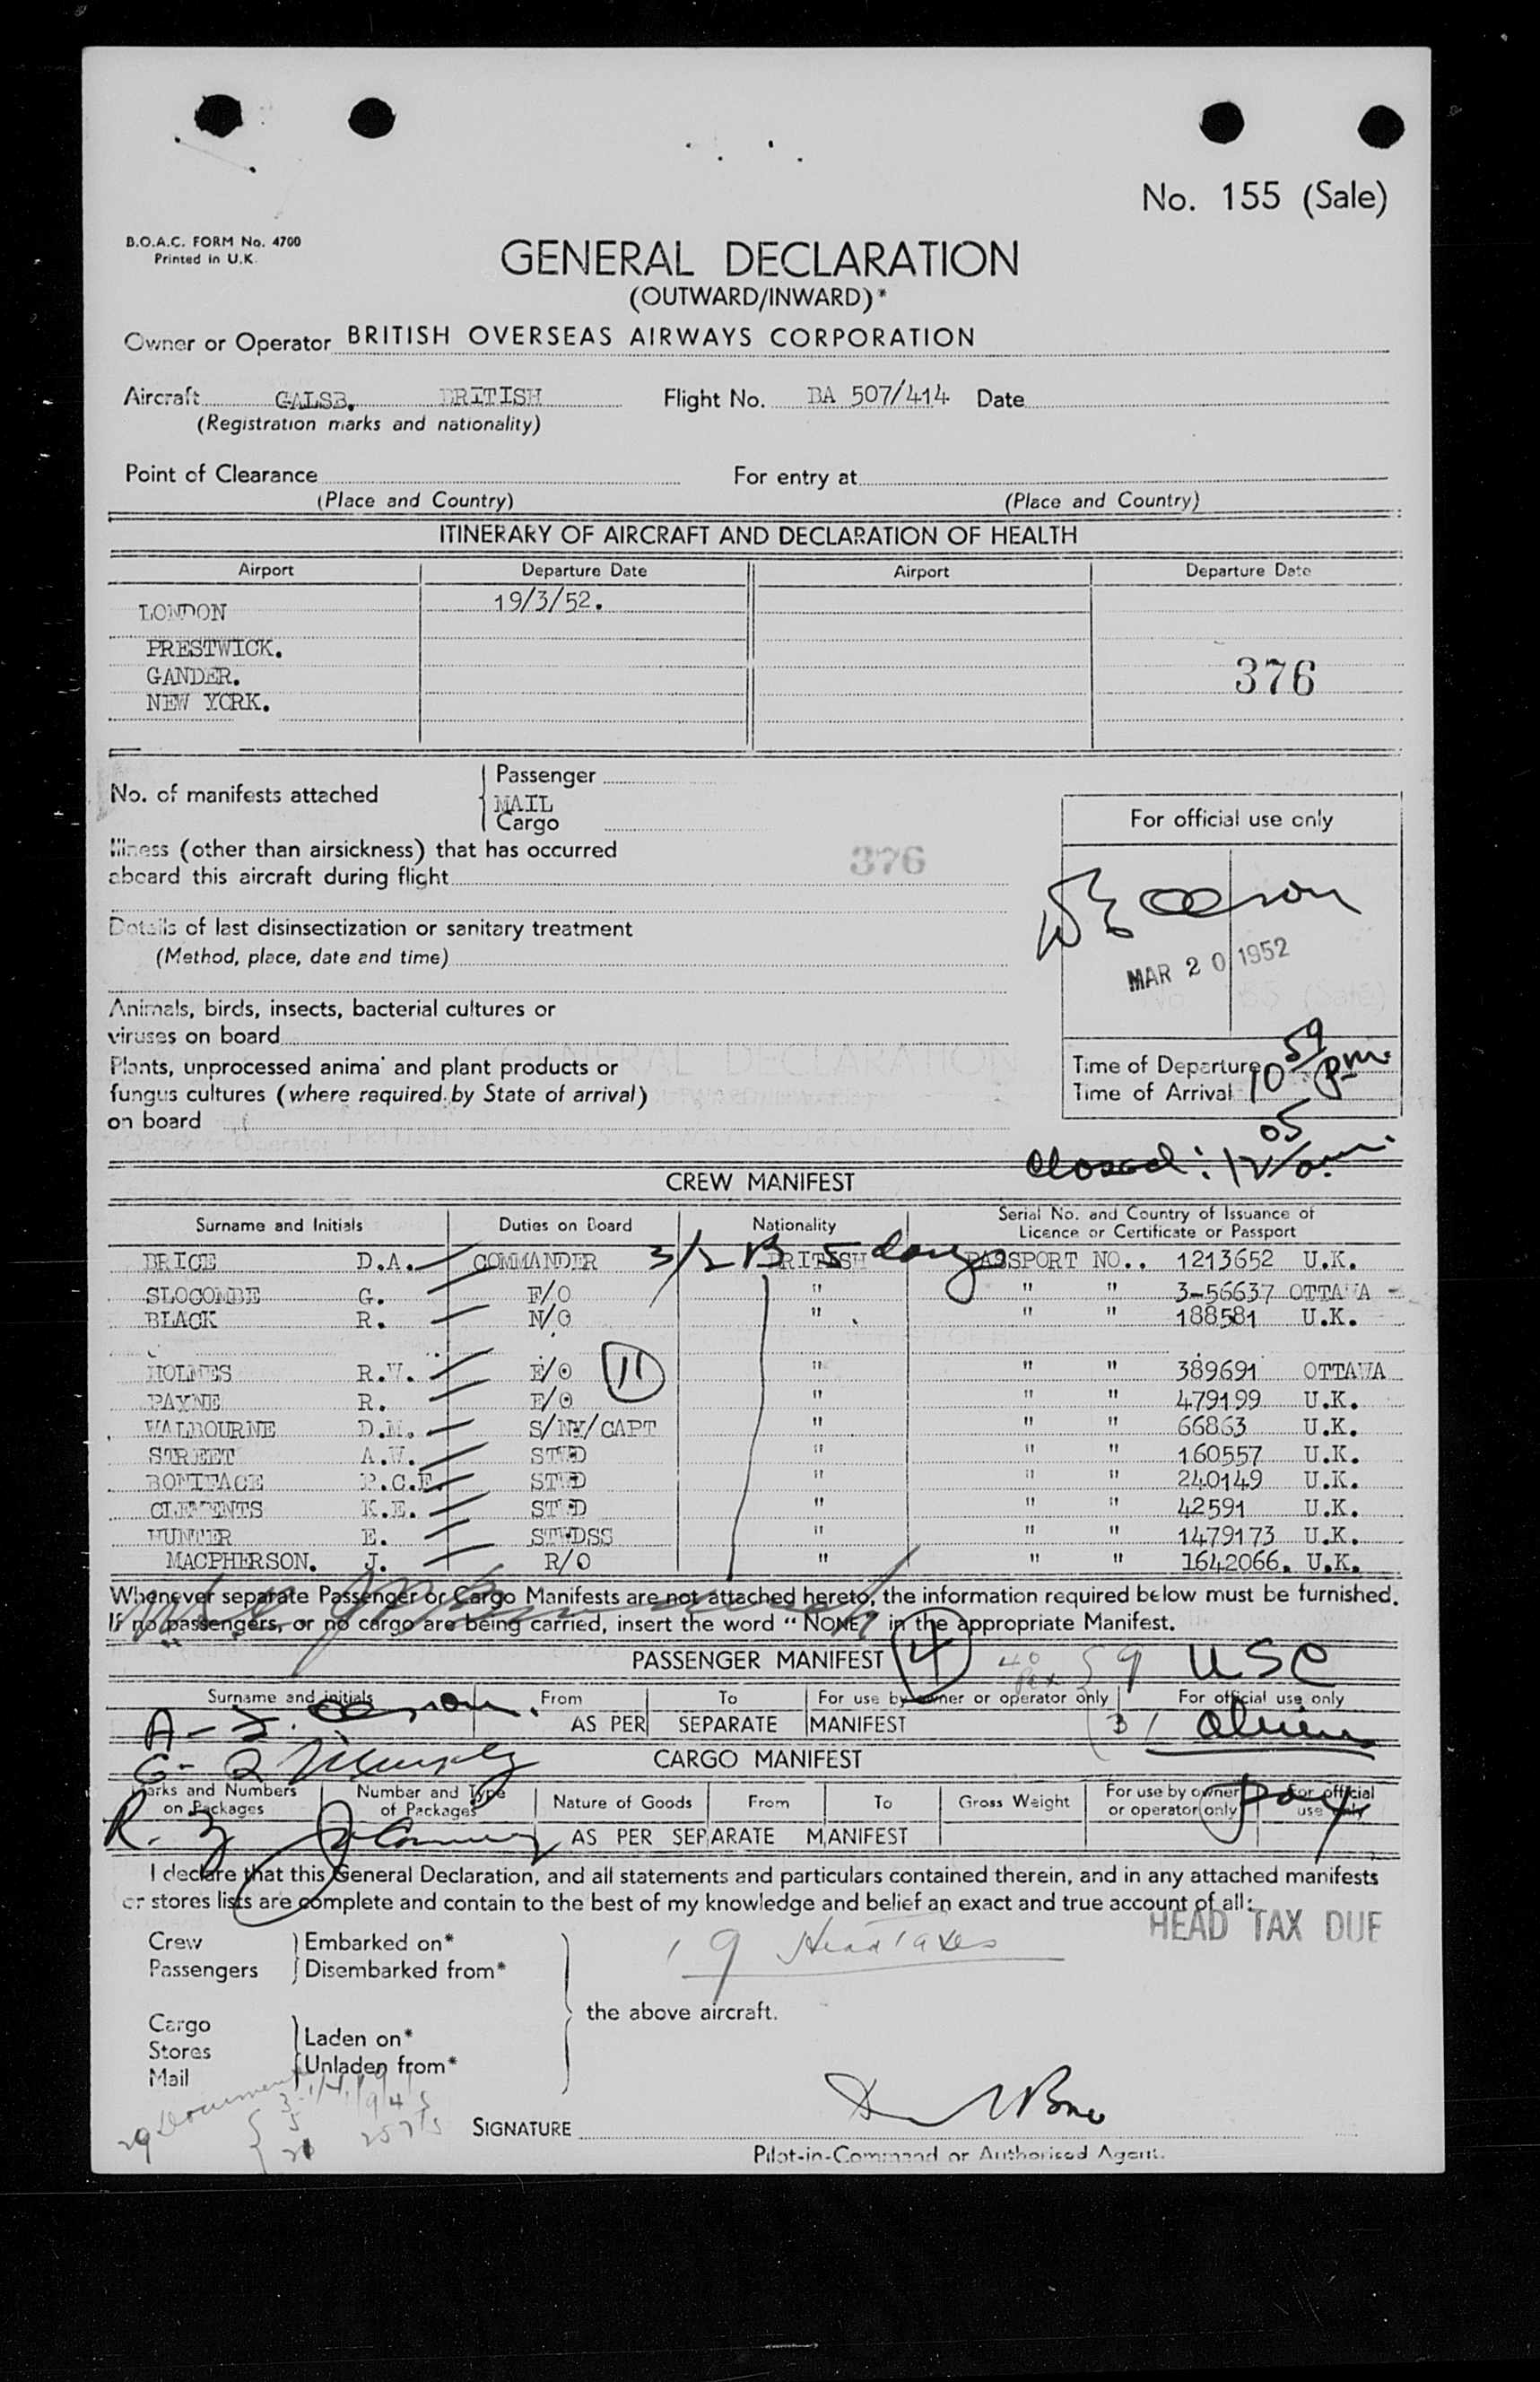 No. 155 (Sale)
B.O.A.C. FORM No. 4700
Printed in U.K.
GENERAL DECLARATION
(OUTWARD/INWARD)*
Owner or Operator BRITISH OVERSEAS AIRWAYS CORPORATION
Aircraft GALSB. BRITISH Flight No. BA 507/414 Date
(Registration marks and nationality)
Point of Clearance For entry at
(Place and Country) (Place and Country)
ITINERARY OF AIRCRAFT AND DECLARATION OF HEALTH
Airport Departure Date Airport Departure Date
LONDON 19/3/52.
PRESTWICK.
GANDER. 376
NEW YORK.
No. of manifests attached
Passenger
MAIL
Cargo
For official use only
Illness (other than airsickness) that has occurred
aboard this aircraft during flight
376
Details of last disinsectization or sanitary treatment
(Method, place, date and time)
MAR 20 1952
Animals, birds, insects, bacterial cultures or
viruses on board
Plants, unprocessed animal and plant products or
fungus cultures (where required by State of arrival)
on board
Time of Departure
Time of Arrival 10 59 pm.
Closed: 12 05 a.m.
CREW MANIFEST
Surname and Initials Duties on Board Nationality Serial No. and Country of Issuance of
Licence or Certificate or Passport
BRICE D.A. COMMANDER BRITISH PASSPORT NO.. 1213652 U.K.
3/2 B 5 days
SLOCOMBE G. F/O " " " 3-56637 OTTAWA
BLACK R. N/O " " " 188581 U.K.
HOLMES R.W. E/O " " " 389691 OTTAWA
11
PAYNE R. E/O " " " 479199 U.K.
WALBOURNE D.M. S/NY/CAPT " " " 66863 U.K.
STREET A.W. STWD " " " 160557 U.K.
BONIFACE P.C.E. STWD " " " 240149 U.K.
CLEMENTS K.E. STWD " " " 42591 U.K.
HUNTER E. STWDSS " " " 1479173 U.K.
MACPHERSON. J. R/O " " " 1642066. U.K.
Whenever separate Passenger or Cargo Manifests are not attached hereto, the information required below must be furnished.
If no passengers, or no cargo are being carried, insert the word "NONE" in the appropriate Manifest.
PASSENGER MANIFEST 4 40 Pax 9 USC
Surname and initials From To For use by owner or operator only For official use only
AS PER SEPARATE MANIFEST 31 Aliens
CARGO MANIFEST
Marks and Numbers on Packages Number and Type of Packages Nature of Goods From To Gross Weight For use by owner or operator only For official use only
AS PER SEPARATE MANIFEST
I declare that this General Declaration, and all statements and particulars contained therein, and in any attached manifests
or stores lists are complete and contain to the best of my knowledge and belief an exact and true account of all:
HEAD TAX DUE
19 Head Taxes
Crew Embarked on*
Passengers Disembarked from*
the above aircraft.
Cargo
Stores Laden on*
Mail Unladen from*
29 Documents
SIGNATURE
Pilot-in-Command or Authorised Agent.